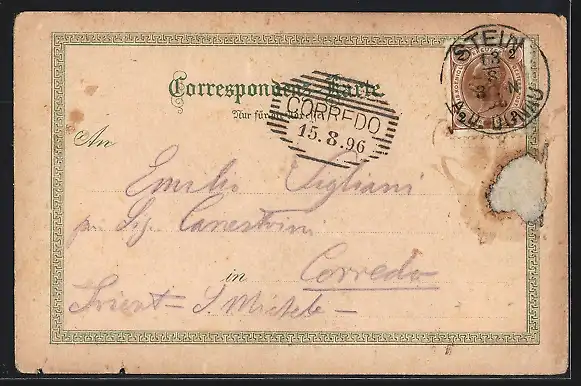 Correspondenz-Karte
Nur für die Adresse
STEIN
13 8
A. D. DONAU
CORREDO
15.8.96
An
Emilio Sigliani
pr. Sig. Canestrini
in Corredo
Triest - S. Michele -